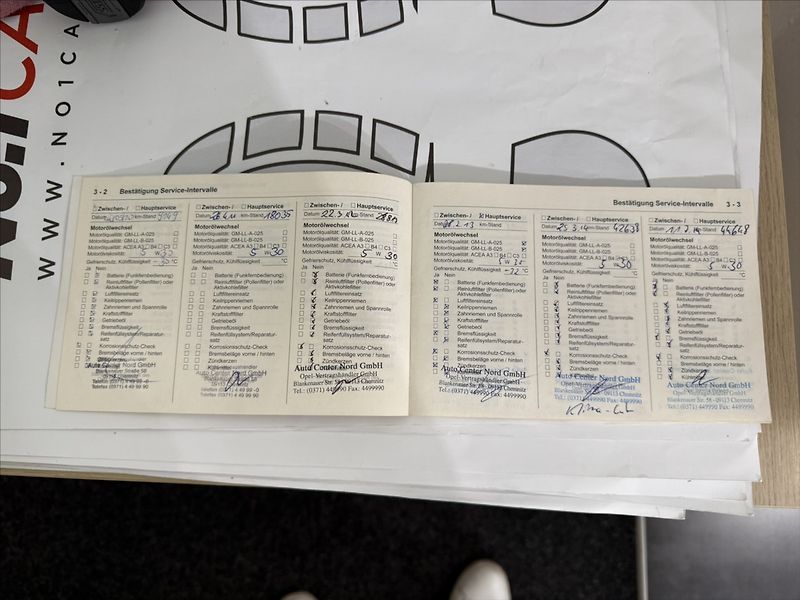 NO.1 CA
WWW.NO1CA
3 - 2 Bestätigung Service-Intervalle
Zwischen- / Hauptservice
Datum km-Stand
Motorölwechsel
Motorölqualität: GM-LL-A-025
Motorölqualität: GM-LL-B-025
Motorölqualität: ACEA A3 B4 C3
Motorölviskosität: 5 W 30
Gefrierschutz, Kühlflüssigkeit °C
Ja Nein
Batterie (Funkfernbedienung)
Reinluftfilter (Pollenfilter) oder
Aktivkohlefilter
Luftfiltereinsatz
Keilrippenriemen
Zahnriemen und Spannrolle
Kraftstofffilter
Getriebeöl
Bremsflüssigkeit
Reifenfüllsystem/Reparatur-
satz
Korrosionsschutz-Check
Bremsbeläge vorne / hinten
Auto Center Nord GmbH
Telefon (0371) 4 49 99 -0
Telefax (0371) 4 49 99 90
Zwischen- / Hauptservice
Datum km-Stand 18035
Motorölwechsel
Motorölqualität: GM-LL-A-025
Motorölqualität: GM-LL-B-025
Motorölqualität: ACEA A3 B4 C3
Motorölviskosität: 5 W 30
Gefrierschutz, Kühlflüssigkeit °C
Ja Nein
Batterie (Funkfernbedienung)
Reinluftfilter (Pollenfilter) oder
Aktivkohlefilter
Luftfiltereinsatz
Keilrippenriemen
Zahnriemen und Spannrolle
Kraftstofffilter
Getriebeöl
Bremsflüssigkeit
Reifenfüllsystem/Reparatur-
satz
Korrosionsschutz-Check
Bremsbeläge vorne / hinten
Zündkerzen
Auto Center Nord GmbH
Telefon (0371) 4 49 99 -0
Telefax (0371) 4 49 99 90
Zwischen- / Hauptservice
Datum 22.3.12 -Stand
Motorölwechsel
Motorölqualität: GM-LL-A-025
Motorölqualität: GM-LL-B-025
Motorölqualität: ACEA A3 B4 C3
Motorölviskosität: 5 W 30
Gefrierschutz, Kühlflüssigkeit °C
Ja Nein
Batterie (Funkfernbedienung)
Reinluftfilter (Pollenfilter) oder
Aktivkohlefilter
Luftfiltereinsatz
Keilrippenriemen
Zahnriemen und Spannrolle
Kraftstofffilter
Getriebeöl
Bremsflüssigkeit
Reifenfüllsystem/Reparatur-
satz
Korrosionsschutz-Check
Bremsbeläge vorne / hinten
Zündkerzen
Auto Center Nord GmbH
Opel-Vertragshändler GmbH
Blankenauer Str. 58 - 09113 Chemnitz
Tel.: (0371) 4499990 Fax: 4499990
Bestätigung Service-Intervalle 3 - 3
Zwischen- / Hauptservice
Datum km-Stand
Motorölwechsel
Motorölqualität: GM-LL-A-025
Motorölqualität: GM-LL-B-025
Motorölqualität: ACEA A3 B4 C3
Motorölviskosität: 5 W
Gefrierschutz, Kühlflüssigkeit -22 °C
Ja Nein
Batterie (Funkfernbedienung)
Reinluftfilter (Pollenfilter) oder
Aktivkohlefilter
Luftfiltereinsatz
Keilrippenriemen
Zahnriemen und Spannrolle
Kraftstofffilter
Getriebeöl
Bremsflüssigkeit
Reifenfüllsystem/Reparatur-
satz
Korrosionsschutz-Check
Bremsbeläge vorne / hinten
Zündkerzen
Auto Center Nord GmbH
Opel-Vertragshändler GmbH
Blankenauer Str. 58 - 09113 Chemnitz
Tel.: (0371) 4499990 Fax: 4499990
Zwischen- / Hauptservice
Datum 25.3.14 km-Stand 42638
Motorölwechsel
Motorölqualität: GM-LL-A-025
Motorölqualität: GM-LL-B-025
Motorölqualität: ACEA A3 B4 C3
Motorölviskosität: 5 W 30
Gefrierschutz, Kühlflüssigkeit °C
Ja Nein
Batterie (Funkfernbedienung)
Reinluftfilter (Pollenfilter) oder
Aktivkohlefilter
Luftfiltereinsatz
Keilrippenriemen
Zahnriemen und Spannrolle
Kraftstofffilter
Getriebeöl
Bremsflüssigkeit
Reifenfüllsystem/Reparatur-
satz
Korrosionsschutz-Check
Bremsbeläge vorne / hinten
Zündkerzen
Auto Center Nord GmbH
Opel-Vertragshändler GmbH
Blankenauer Str. 58 - 09113 Chemnitz
Tel.: (0371) 4499990 Fax: 4499990
Zwischen- / Hauptservice
Datum km-Stand 44648
Motorölwechsel
Motorölqualität: GM-LL-A-025
Motorölqualität: GM-LL-B-025
Motorölqualität: ACEA A3 B4 C3
Motorölviskosität: 5 W 30
Gefrierschutz, Kühlflüssigkeit °C
Ja Nein
Batterie (Funkfernbedienung)
Reinluftfilter (Pollenfilter) oder
Aktivkohlefilter
Luftfiltereinsatz
Keilrippenriemen
Zahnriemen und Spannrolle
Kraftstofffilter
Getriebeöl
Bremsflüssigkeit
Reifenfüllsystem/Reparatur-
satz
Korrosionsschutz-Check
Bremsbeläge vorne / hinten
Zündkerzen
Auto Center Nord GmbH
Opel-Vertragshändler GmbH
Blankenauer Str. 58 - 09113 Chemnitz
Tel.: (0371) 4499990 Fax: 4499990